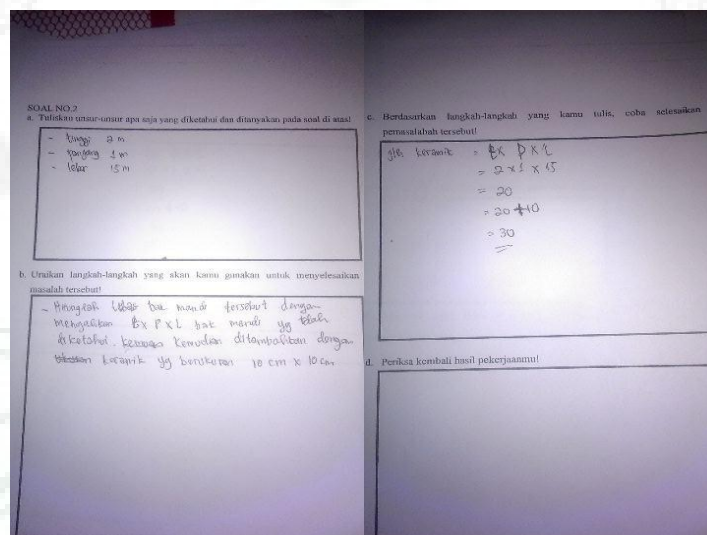 SOAL NO.2
a. Tuliskan unsur-unsur apa saja yang diketahui dan ditanyakan pada soal di atas!
- tinggi 2 m
- panjang 1 m
- lebar 15 m
b. Uraikan langkah-langkah yang akan kamu gunakan untuk menyelesaikan
masalah tersebut!
- bak mandi tersebut dengan
mengalikan t x P x L bak mandi yg telah
diketahui, kemudian ditambahkan dengan
keramik yg berukuran 10 cm x 10 cm
c. Berdasarkan langkah-langkah yang kamu tulis, coba selesaikan
pemasalahab tersebut!
jlh keramik = t x P x L
= 2 x 1 x 15
= 20
= 20 + 10
= 30
d. Periksa kembali hasil pekerjaanmu!